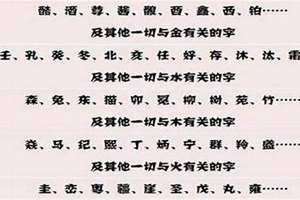 酷、酒、尊、酱、酸、酉、鑫、西、铂……
及其他一切与金有关的字
壬、孔、葵、冬、北、亥、任、好、存、沐、汰、霜
及其他一切与水有关的字
森、兔、东、猫、卯、冕、柳、树、苑、竹……
及其他一切与木有关的字
焱、马、纪、熙、丁、炳、宁、群、羚、盛……
及其他一切与火有关的字
圭、峦、粤、疆、崖、圣、戊、丸、雍……